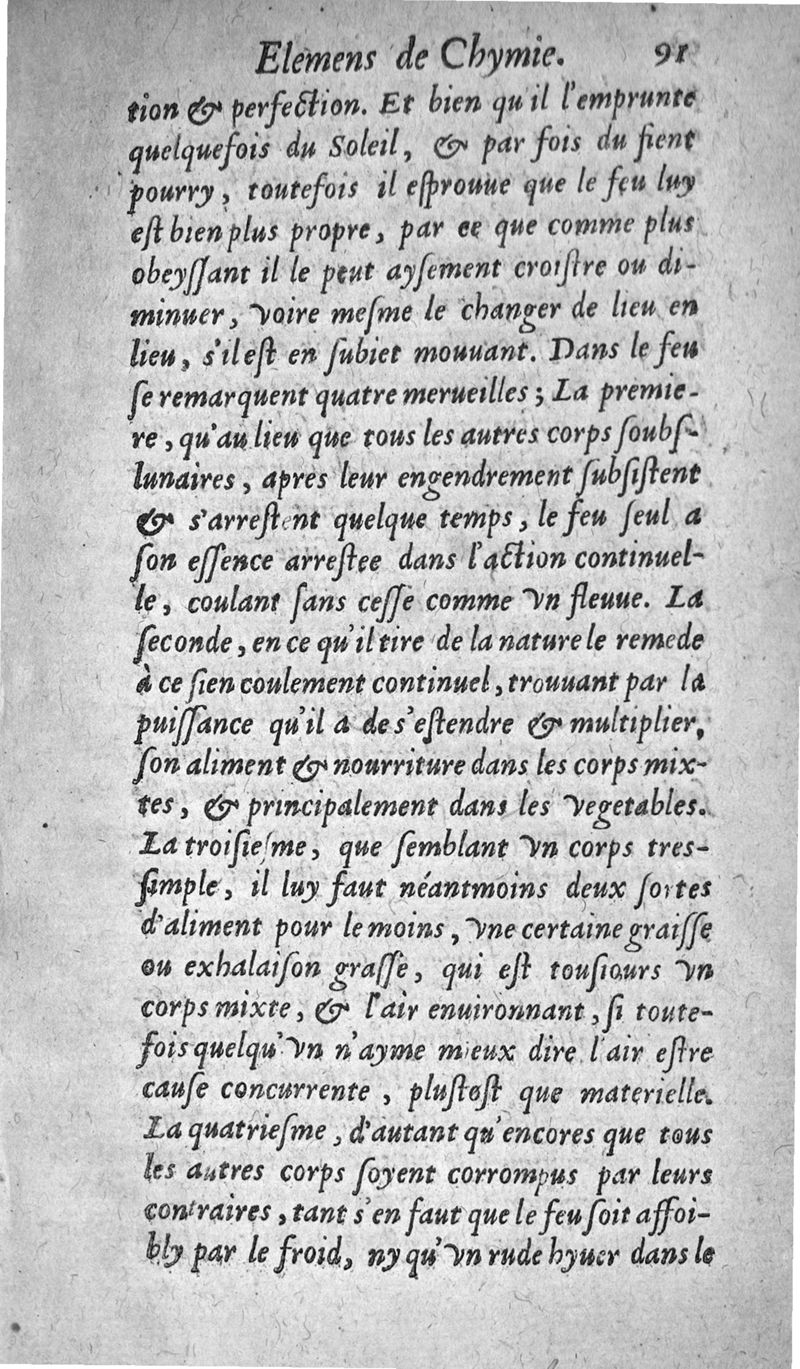 Elemens de Chymie. 91
tion & perfection. Et bien qu'il l'emprunte
quelquefois du Soleil, & par fois du fient
pourry, toutefois il esprouue que le feu luy
est bien plus propre, par ce que comme plus
obeyſſant il le peut ayſement croiſtre ou di-
minuer, voire meſme le changer de lieu en
lieu, s'il eſt en ſubiet mouuant. Dans le feu
ſe remarquent quatre merueilles; La premie-
re, qu'au lieu que tous les autres corps ſoubſ-
lunaires, apres leur engendrement ſubſiſtent
& s'arreſtent quelque temps, le feu ſeul a
ſon eſſence arreſtee dans l'action continuel-
le, coulant ſans ceſſe comme vn fleuue. La
ſeconde, en ce qu'il tire de la nature le remede
à ce ſien coulement continuel, trouuant par la
puiſſance qu'il a de s'eſtendre & multiplier,
ſon aliment & nourriture dans les corps mix-
tes, & principalement dans les vegetables.
La troiſieſme, que ſemblant vn corps tres-
ſimple, il luy faut néantmoins deux ſortes
d'aliment pour le moins, vne certaine graiſſe
ou exhalaiſon graſſe, qui eſt touſiours vn
corps mixte, & l'air enuironnant, ſi toute-
fois quelqu'vn n'ayme mieux dire l'air eſtre
cauſe concurrente, pluſtoſt que materielle.
La quatrieſme, d'autant qu'encores que tous
les autres corps ſoyent corrompus par leurs
contraires, tant s'en faut que le feu ſoit affoi-
bly par le froid, ny qu'vn rude hyuer dans le